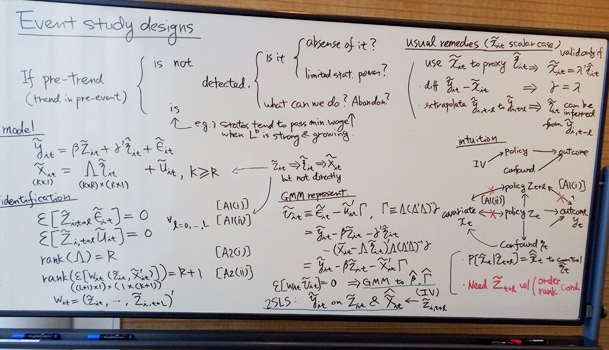 Event study designs
If pre-trend
(trend in pre-event)
is not
detected.
is it
absense of it?
limited stat. power?
what can we do? Abandon?
is
e.g) states tend to pass min. wage↑
when Lᴰ is strong & growing.
model
ỹit = βz̃it + γ'η̃it + ε̃it
x̃it = Λη̃it + ũit, k≥R
(K×1) (K×R)×(R×1)
z̃it ⇒ η̃it ⇒ x̃it
but not directly
identification
E[z̃i,t+l ε̃it] = 0 [A1(i)]
E[z̃i,t+l ũit] = 0 [A1(ii)]
rank(Λ) = R [A2(i)]
rank(E[Wit(z̃it, x̃it')]) = R+1 [A2(ii)]
Wit = (z̃it, ..., z̃i,t+L)'
GMM represent
ṽit = ε̃it - ũit'Γ, Γ = Λ(Λ'Λ)⁻¹γ
= ỹit - βz̃it - γ'η̃it
- (x̃it - Λη̃it)'Λ(Λ'Λ)⁻¹γ
= ỹit - βz̃it - x̃it'Γ
E[Wit ṽit] = 0 ⇒ GMM to β̂, Γ̂
(IV)
2SLS: ỹit on z̃it & x̃it ← z̃i,t+l
usual remedies (x̃it scalar case)
valid only if
use x̃it to proxy η̃it ⇒ x̃it = λ'η̃it
diff ỹit - x̃it ⇒ γ = λ
intuition
policy → outcome
IV
confound
policy Zt+l [A1(i)]
[A1(ii)]
covariate xt
policy Zt
outcome yt
confound ηt
P[x̃t|z̃t+l] = x̂t to control η̃t
Need Zt+l w/ (order
rank cond.